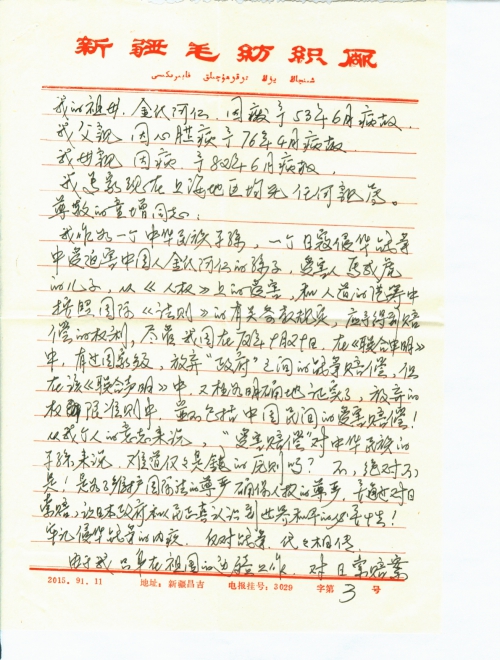 新疆毛纺织厰
我的祖母,金氏阿仁,因病于53年6月病故。
我父親,因心脏病于76年4月病故。
我母親,因病,于80年6月病故。
我与親现在上海地区均无任何親属。
尊敬的童增同志:
我作为一个中华民族子孫,一个日寇侵华战争
中受迫害中国人金氏阿仁的孫子,受害人
的儿子,从《人权》上的受害,和人道的
按照国际《法则》的有关条款规定,应享得到赔
偿的权利,尽管我国在72年9月29日,在《联合申明》
中,有过国家级,放弃“政府”之间的战争赔偿,但
在该《联合声明》中,又极为明确地证实了,放弃的
权限准则中,并不包括中国民间的受害赔偿!
从我个人的意志来说,“受害赔偿”对中华民族的
子孫来说,难道仅仅是钱的原则吗?不,绝对不
是!是为了维护国际法的尊严,确保人权的尊严,通过对日
索赔,让日本政府和人民正真认识到世界和平的必要性!
牢记侵华战争的内疚,反对战争,代代相传。
由于我只身在祖国的边疆工作,对日索赔案
2015.91.11 地址:新疆昌吉 电报挂号:3029 字第3号